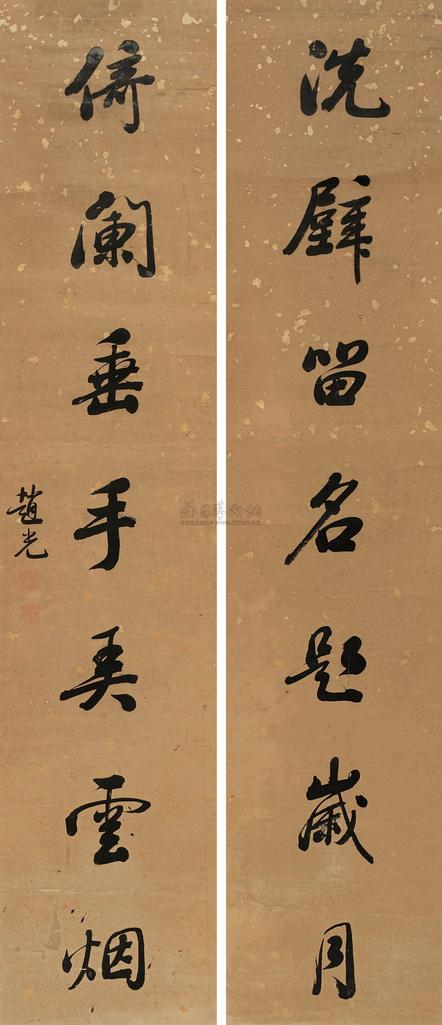 洗壁留名題歲月
倚闌垂手弄雲烟
趙光